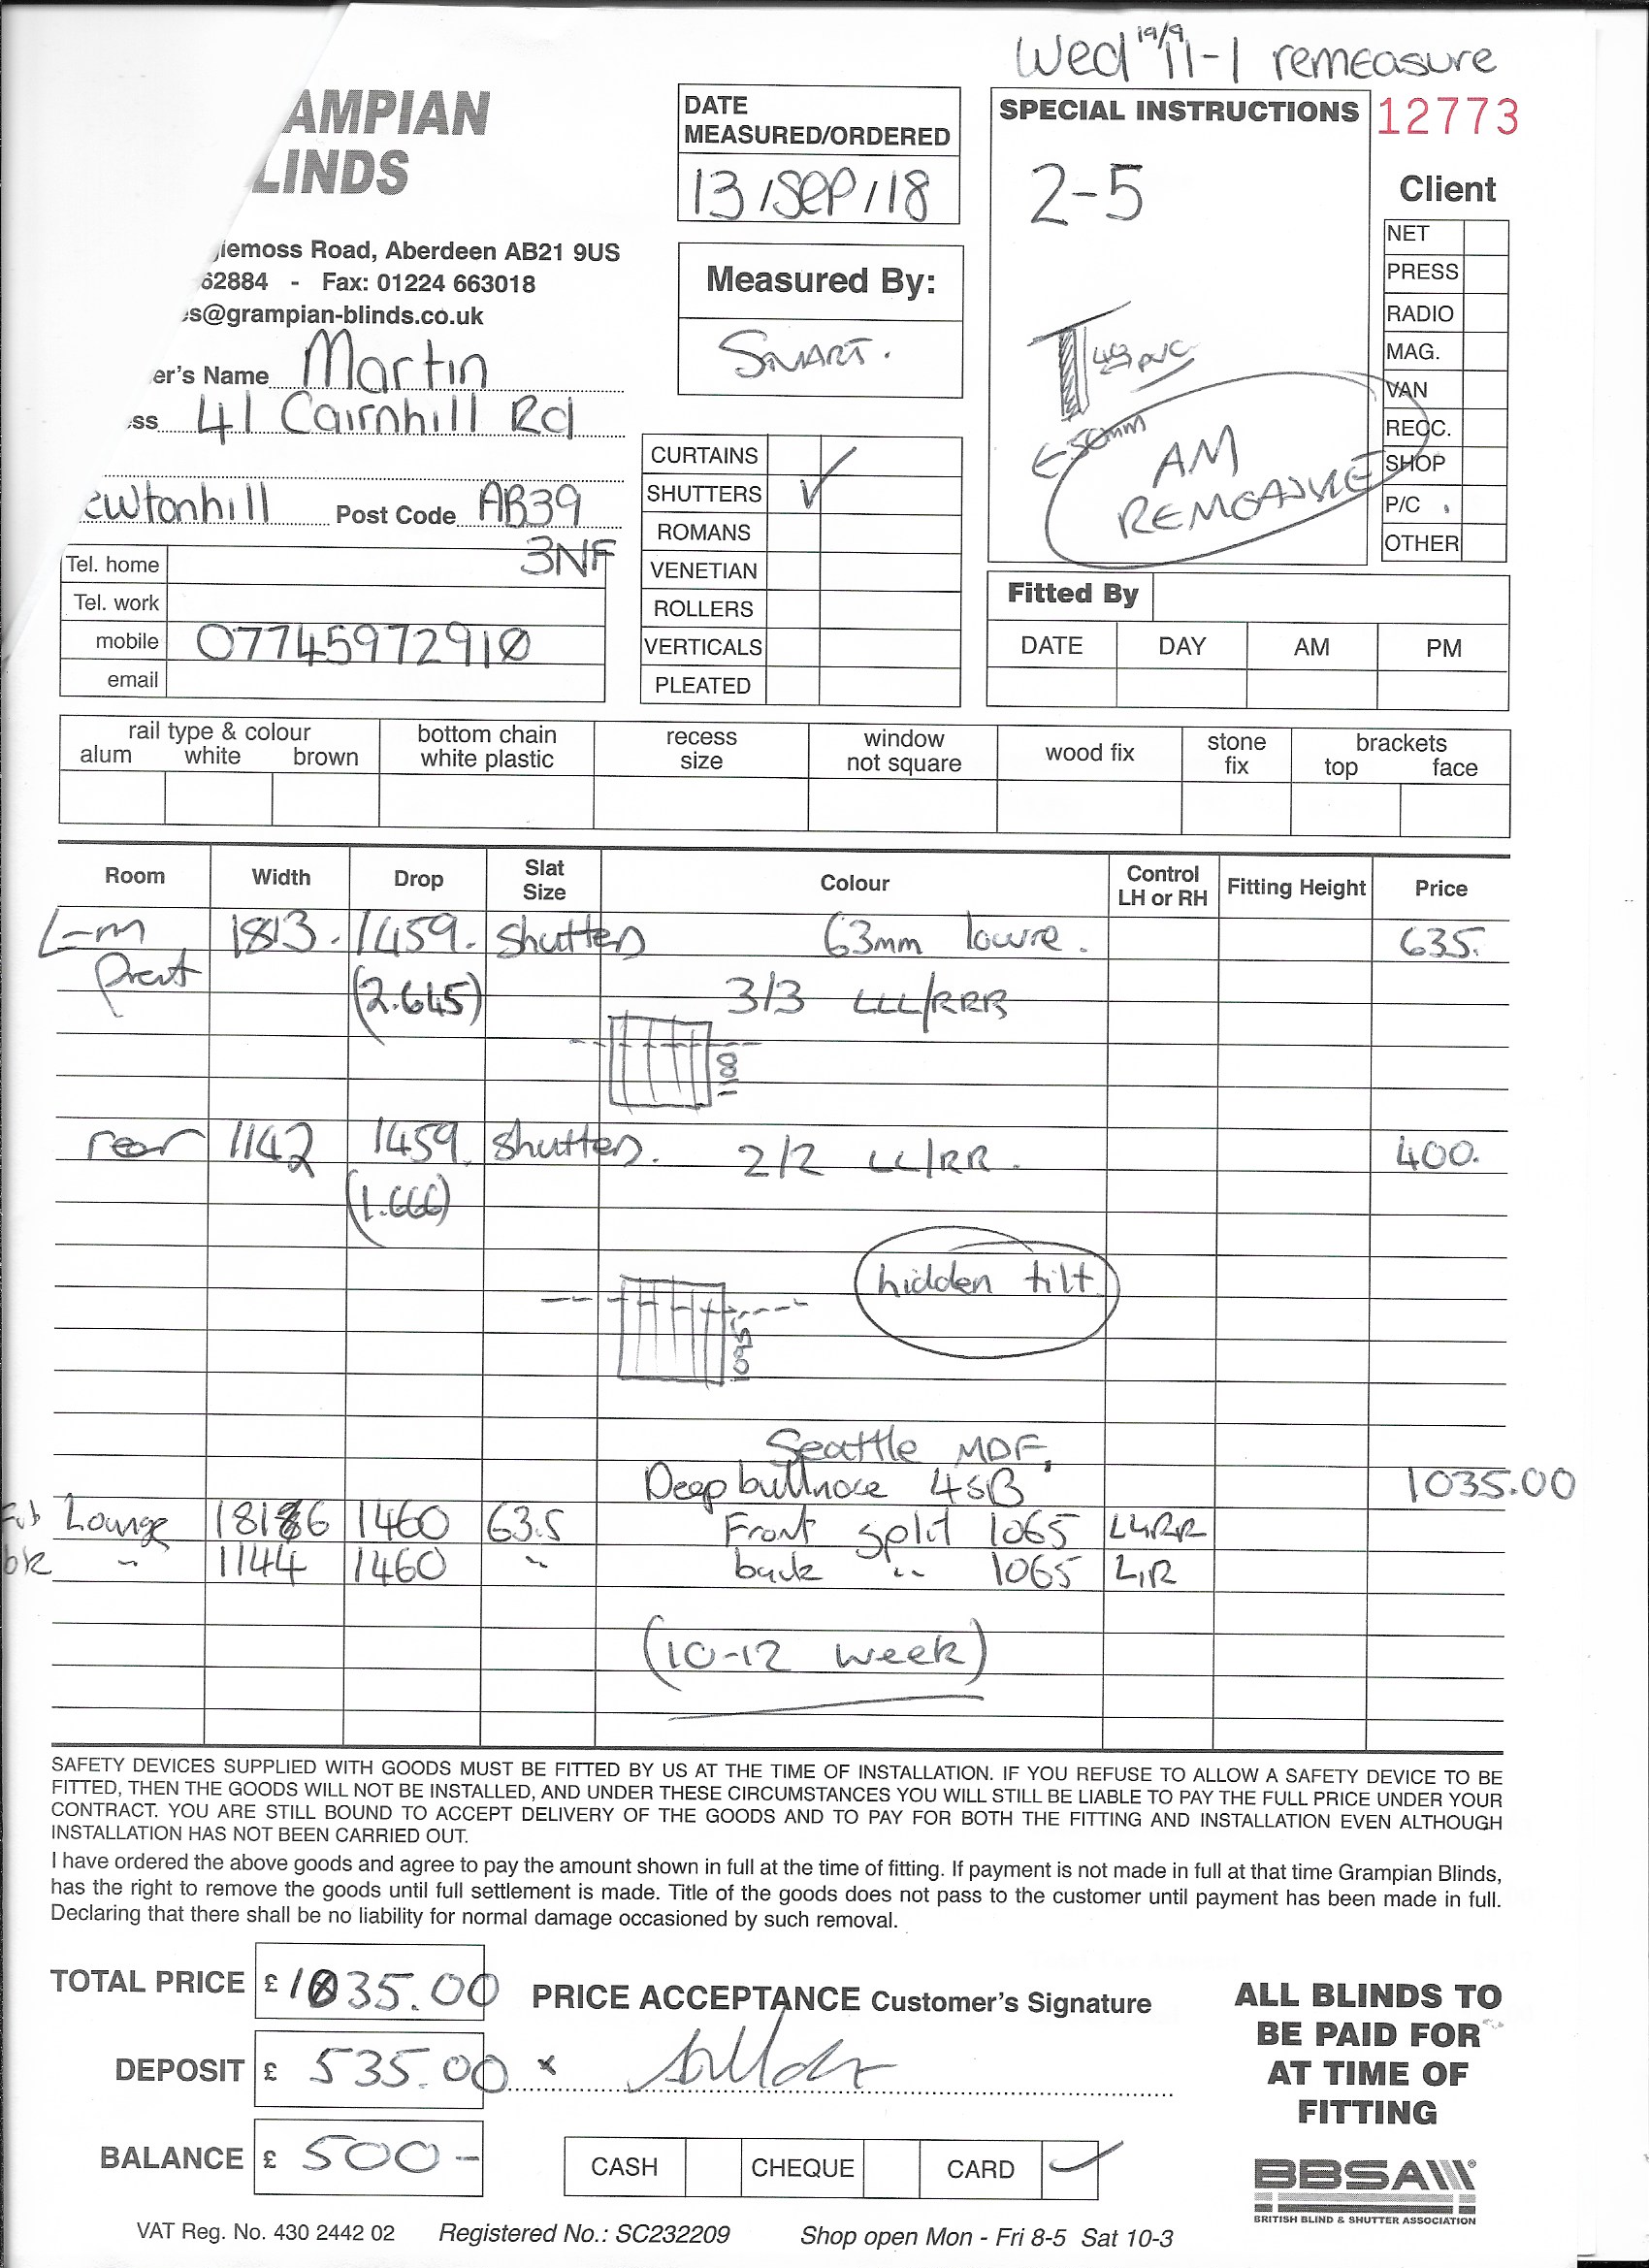 Wed 19/9 11-1 remeasure
AMPIAN
LINDS
iemoss Road, Aberdeen AB21 9US
62884 - Fax: 01224 663018
s@grampian-blinds.co.uk
er's Name Martin
ss 41 Cairnhill Rd
ewtonhill Post Code AB39
3NF
Tel. home
Tel. work
mobile 07745972910
email
DATE
MEASURED/ORDERED
13/SEP/18
Measured By:
SMART.
CURTAINS
SHUTTERS ✓
ROMANS
VENETIAN
ROLLERS
VERTICALS
PLEATED
SPECIAL INSTRUCTIONS
2-5
49 pvc
50mm
AM
REMEASURE
12773
Client
NET
PRESS
RADIO
MAG.
VAN
RECC.
SHOP
P/C
OTHER
Fitted By
DATE DAY AM PM
rail type & colour
alum white brown
bottom chain
white plastic
recess
size
window
not square
wood fix
stone
fix
brackets
top face
Room Width Drop Slat Size Colour Control LH or RH Fitting Height Price
L-m 1813. 1459. Shutters 63mm louvre. 635.
front (2.645) 3/3 LLL/RRR
1180
rear 1142 1459. Shutters. 2/2 LL/RR. 400.
(1.666)
hidden tilt
1095
Seattle MDF,
Deep bullnose 4SB 1035.00
Lounge 1460 63.5 Front split 1065 LLRR
" 1144 1460 " back " 1065 L,R
(10-12 week)
SAFETY DEVICES SUPPLIED WITH GOODS MUST BE FITTED BY US AT THE TIME OF INSTALLATION. IF YOU REFUSE TO ALLOW A SAFETY DEVICE TO BE
FITTED, THEN THE GOODS WILL NOT BE INSTALLED, AND UNDER THESE CIRCUMSTANCES YOU WILL STILL BE LIABLE TO PAY THE FULL PRICE UNDER YOUR
CONTRACT. YOU ARE STILL BOUND TO ACCEPT DELIVERY OF THE GOODS AND TO PAY FOR BOTH THE FITTING AND INSTALLATION EVEN ALTHOUGH
INSTALLATION HAS NOT BEEN CARRIED OUT.
I have ordered the above goods and agree to pay the amount shown in full at the time of fitting. If payment is not made in full at that time Grampian Blinds,
has the right to remove the goods until full settlement is made. Title of the goods does not pass to the customer until payment has been made in full.
Declaring that there shall be no liability for normal damage occasioned by such removal.
TOTAL PRICE £ 1035.00
DEPOSIT £ 535.00
BALANCE £ 500-
PRICE ACCEPTANCE Customer's Signature
x
CASH CHEQUE CARD ✓
ALL BLINDS TO
BE PAID FOR
AT TIME OF
FITTING
BBSA
BRITISH BLIND & SHUTTER ASSOCIATION
VAT Reg. No. 430 2442 02 Registered No.: SC232209 Shop open Mon - Fri 8-5 Sat 10-3